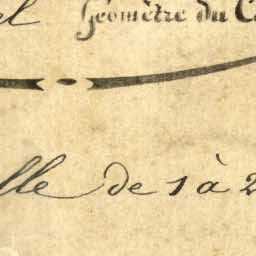 el Géomètre du C
lle de 1 à 2